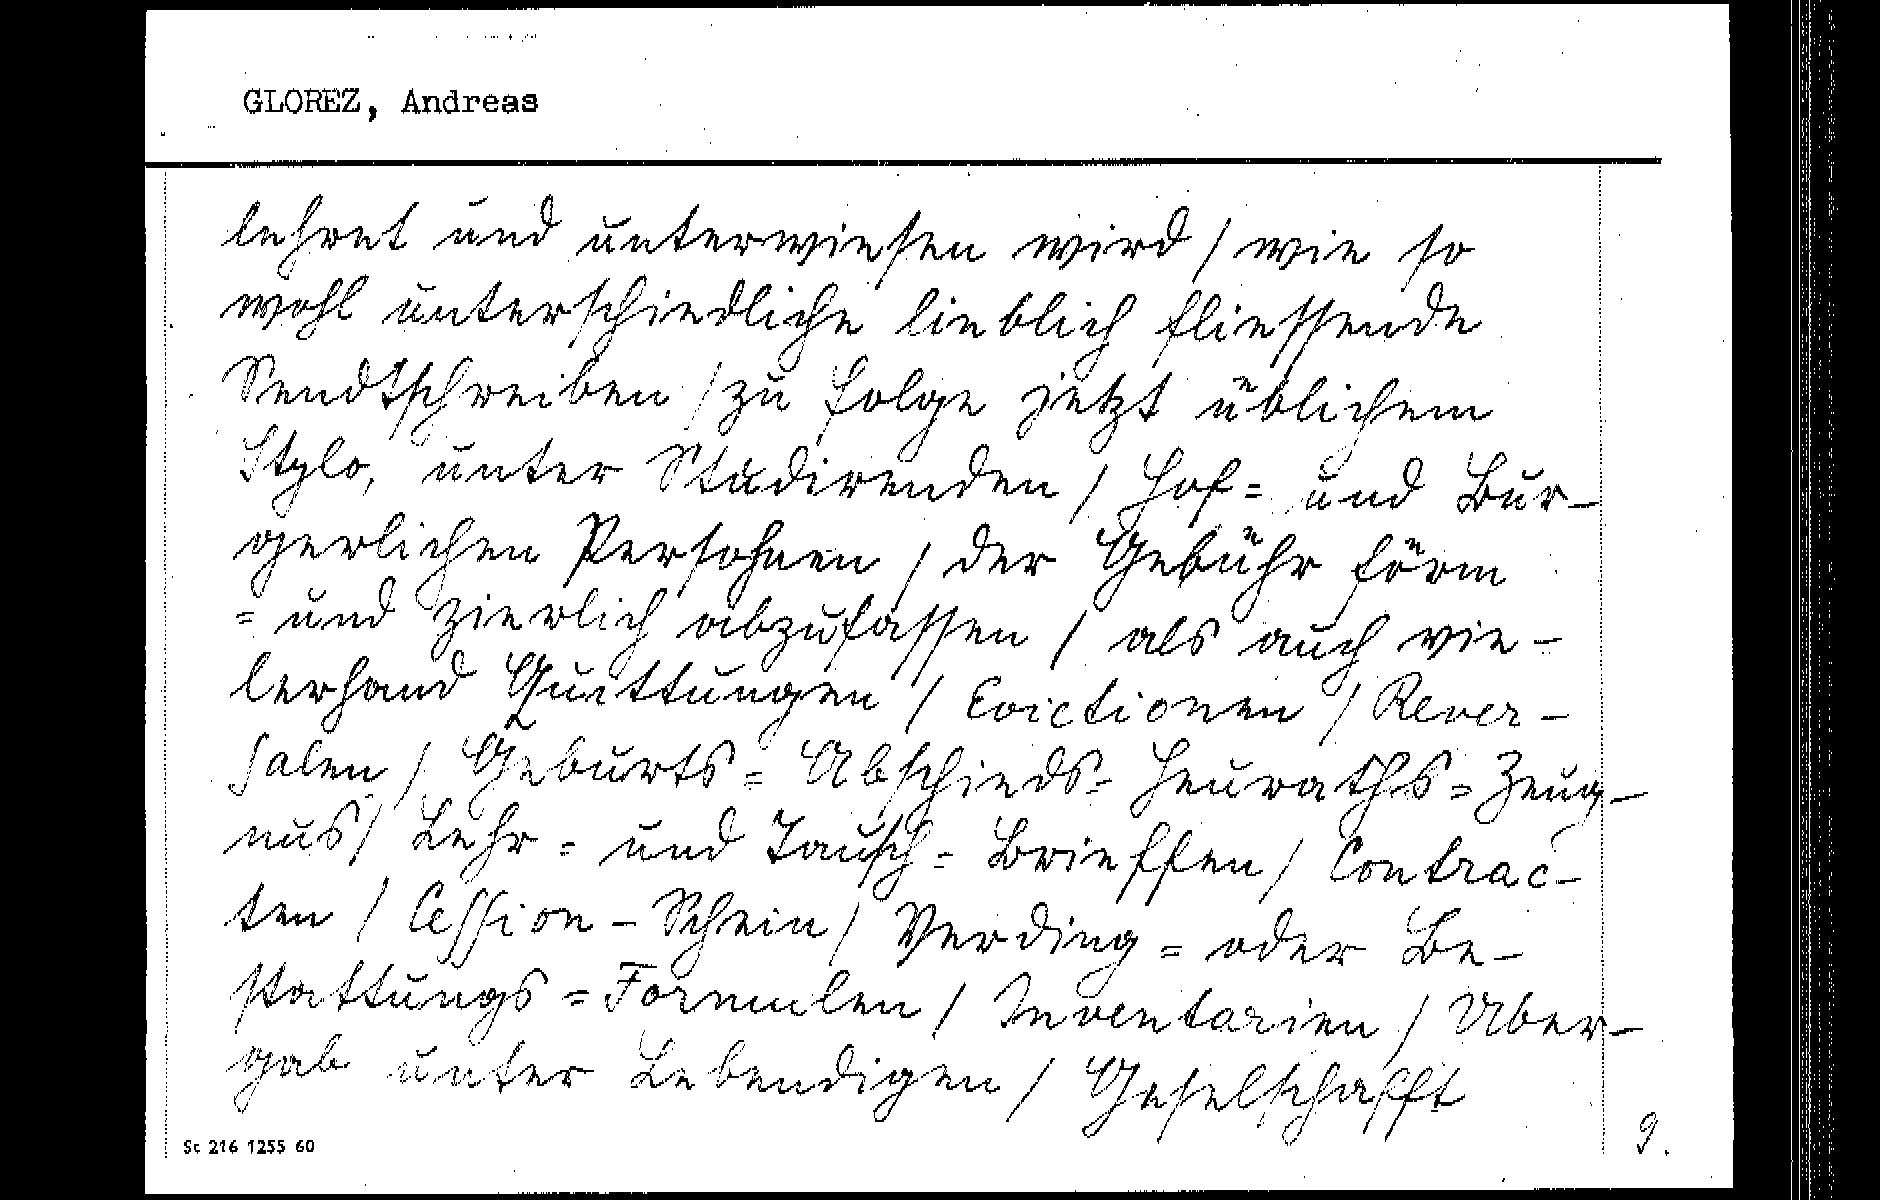 GLOREZ, Andreas
lehret und unterwiesen wird / wie so
wohl unterschiedliche lieblich fliessende
Sendtschreiben / zu folge jetzt üblichem
Stylo, unter Studirenden / Hof= und Bur-
gerlichen Persohnen / der Gebühr förm
= und zierlich abzufassen / als auch vie-
lerhand Quittungen / Evictionen / Rever-
salen / Geburts= Abschieds= Heuraths=Zeug-
nus / Lehr= und Tausch= Brieffen / Contrac-
ten / Cession-Schein / Verding= oder Be-
stattungs=Formulen / Inventarien / Uber-
gab unter Lebendigen / Geselschafft
Sc 216 1255 60
9.